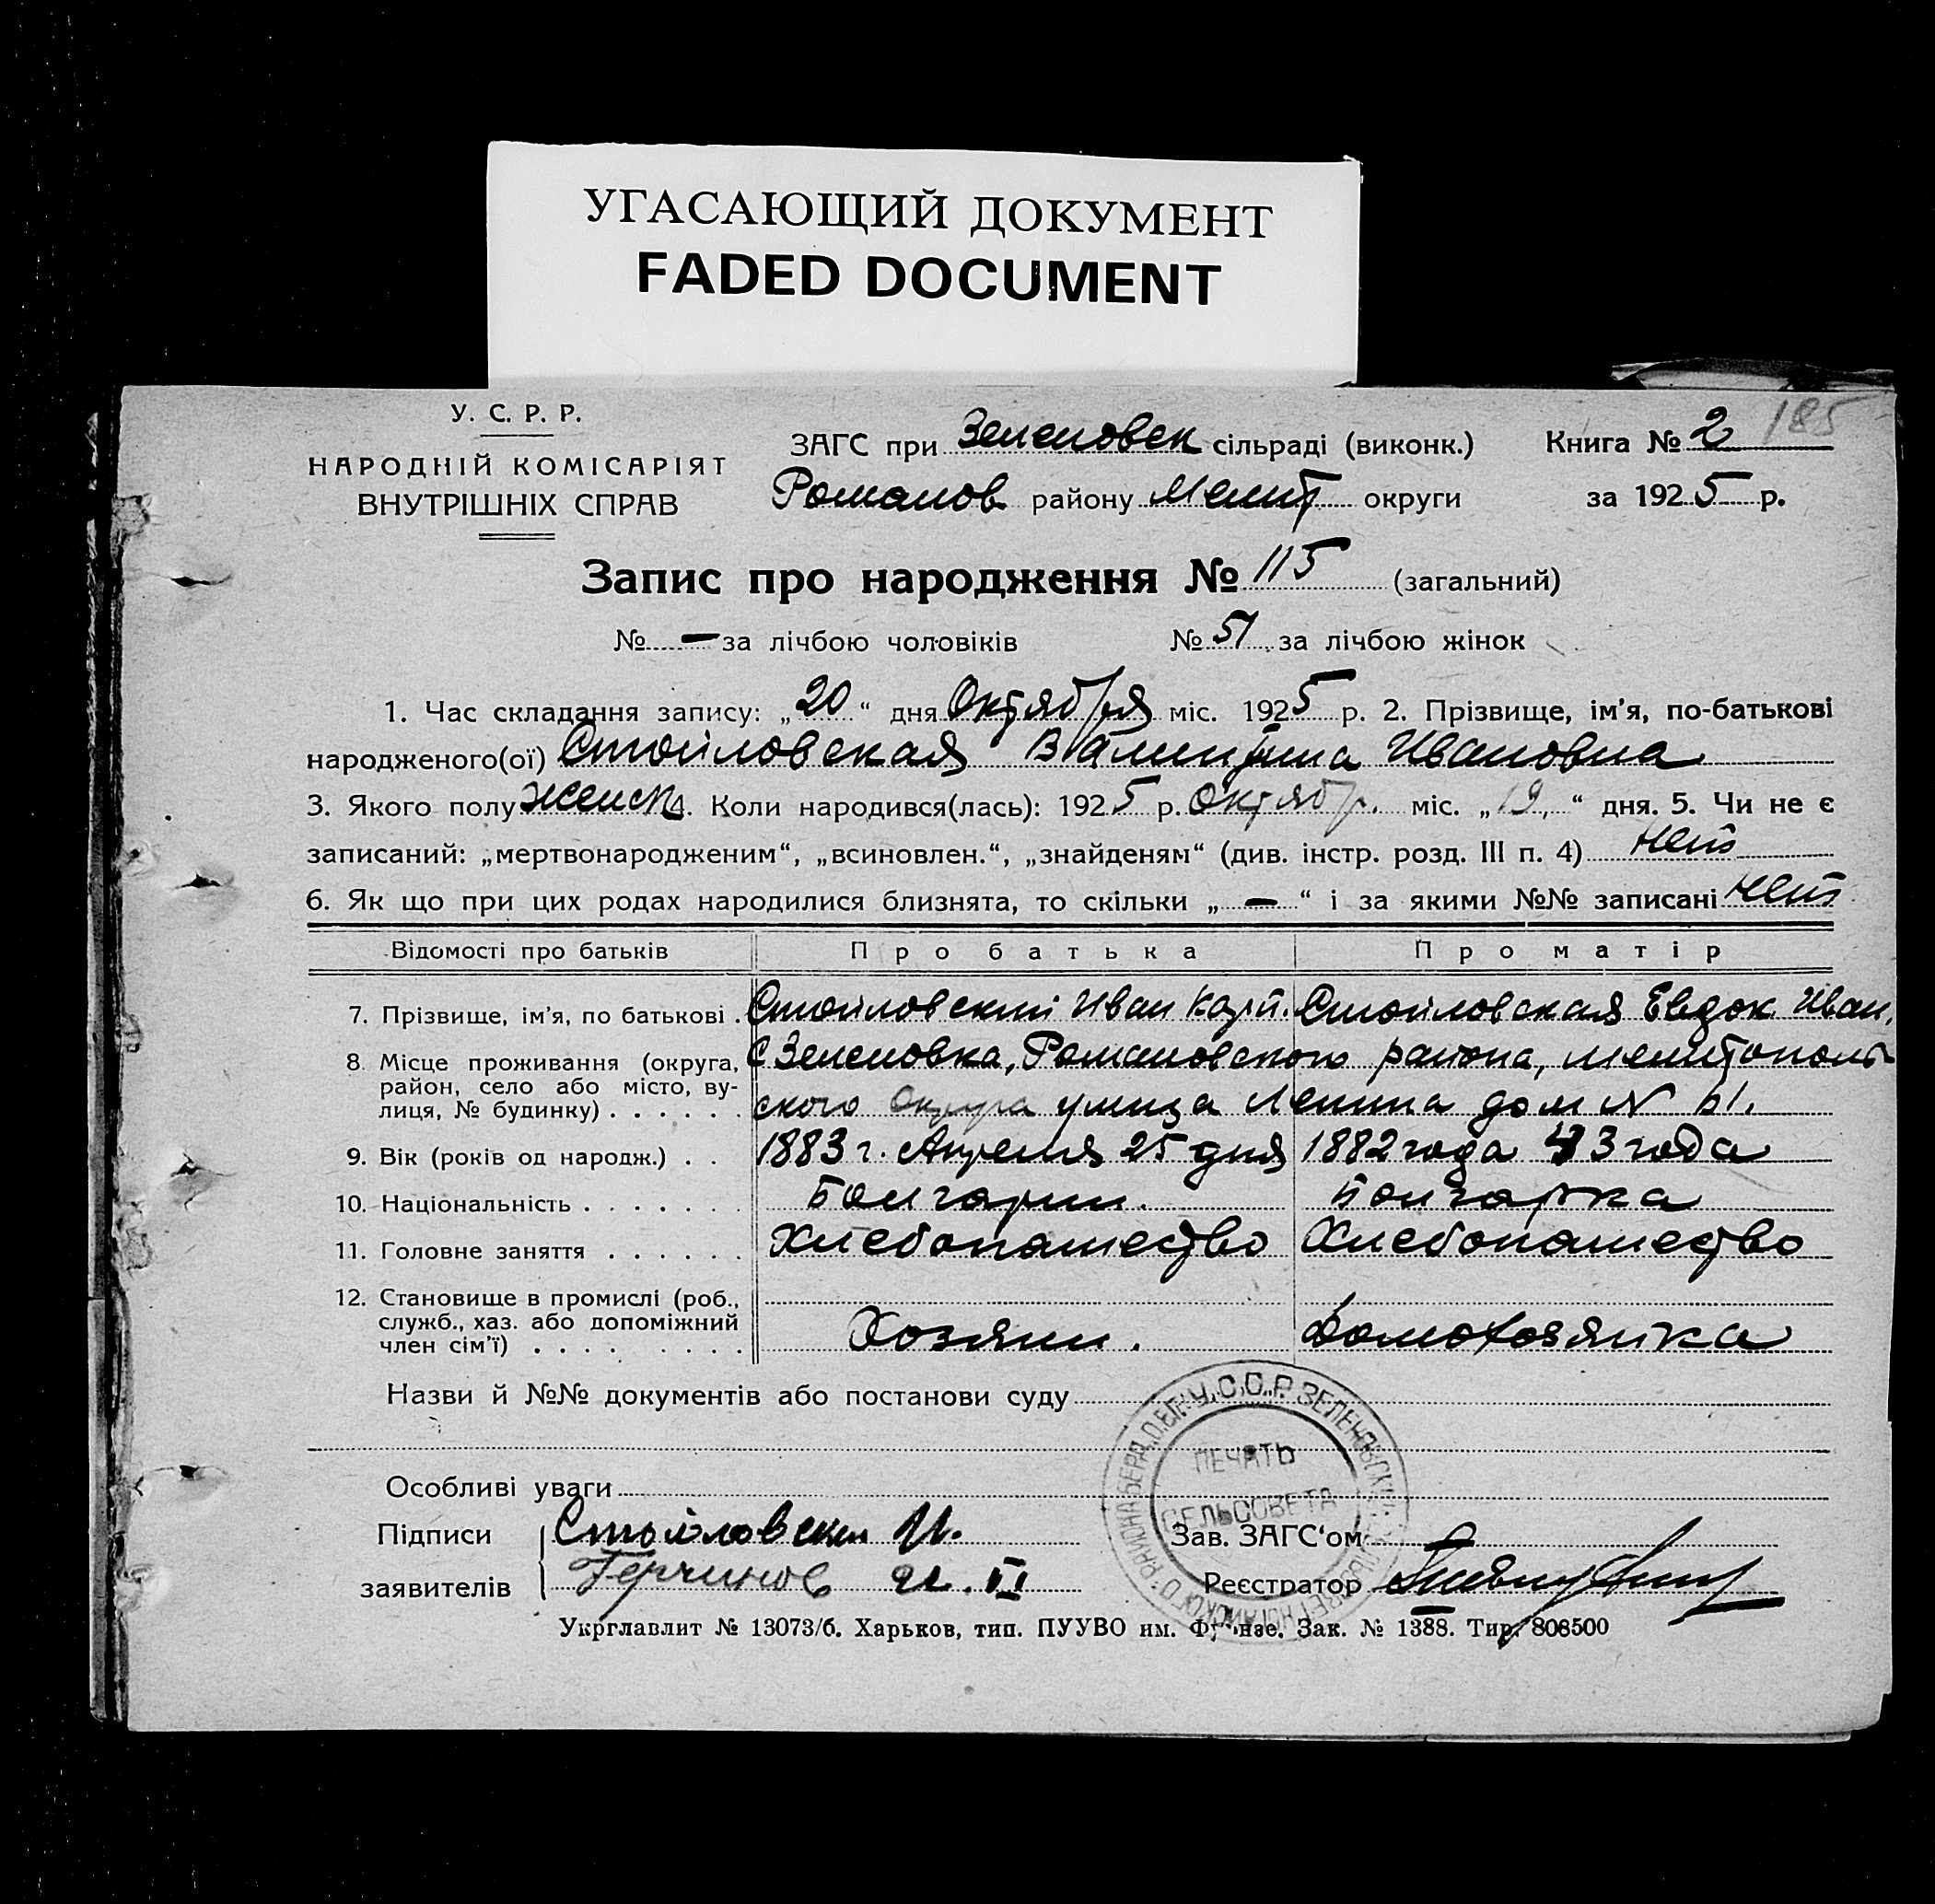 УГАСАЮЩИЙ ДОКУМЕНТ
FADED DOCUMENT
185
У. С. Р. Р.
НАРОДНІЙ КОМІСАРІЯТ
ВНУТРІШНІХ СПРАВ
ЗАГС при Зеленовск сільраді (виконк.) Книга № 2
Романов району Мелит округи за 1925 р.
Запис про народження № 115 (загальний)
№ — за лічбою чоловіків № 51 за лічбою жінок
1. Час складання запису: „20“ дня Октября міс. 1925 р. 2. Прізвище, ім'я, по-батькові
народженого(ої) Стойловская Валентина Ивановна
3. Якого полу женск 4. Коли народився(лась): 1925 р. Октябр. міс. „19“ дня. 5. Чи не є
записаний: „мертвонародженим“, „всиновлен.“, „знайденям“ (див. інстр. розд. III п. 4) нет
6. Як що при цих родах народилися близнята, то скільки „—“ і за якими №№ записані нет
Відомості про батьків Про батька Про матір
7. Прізвище, ім'я, по батькові . Стойловский Иван Карп. Стойловская Евдок. Иван.
8. Місце проживання (округа, район, село або місто, вулиця, № будинку) . . . . . . с Зеленовка, Романовского района, Мелитополь
ского Округа улица Ленина дом N 61.
9. Вік (років од народж.) . . 1883 г. Апреля 25 дня 1882 года 43 года
10. Національність . . . . . . . Болгарин. Болгарка
11. Головне заняття . . . . . . Хлебопашество Хлебопашество
12. Становище в промислі (роб.,
служб., хаз. або допоміжний
член сім'ї) . . . . . . . . Хозяин. Домохозяйка
Назви й №№ документів або постанови суду
Особливі уваги
ПЕЧАТЬ
СЕЛЬСОВЕТА
У.С.С.Р. ЗЕЛЕНОВСКИЙ
Підписи Стойловски И. Зав. ЗАГС'ом
заявителів И. П Реєстратор
Укрглавлит № 13073/б. Харьков, тип. ПУУВО им. Фрунзе. Зак. № 1388. Тир. 808500